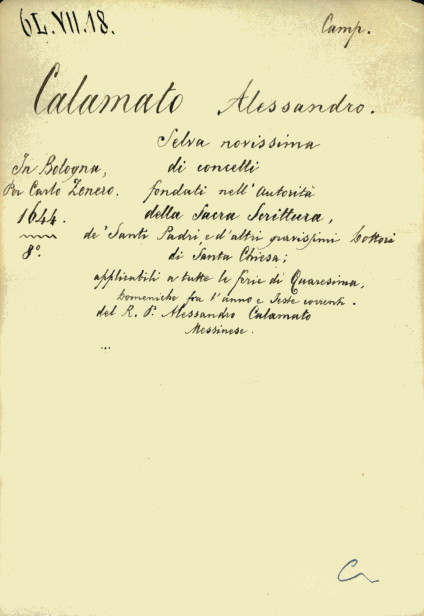 6L.VII.18.
Camp.
Calamato Alessandro.
Selva novissima
di concetti
fondati nell'Autorità
della Sacra Scrittura,
de' Santi Padri, e d'altri gravissimi Dottori
di Santa Chiesa;
applicabili a tutte le ferie di Quaresima,
Domeniche fra l'anno e Feste correnti.
del R. P. Alessandro Calamato
Messinese.
...
In Bologna,
Per Carlo Zenero.
1644.
8º.